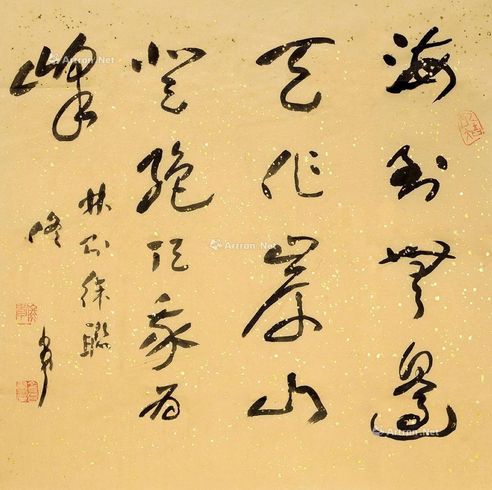 海到無邊
天作岸山
登絶頂我為
峰
林則徐聯
Artron.Net
Artron.Net
Artron.Net